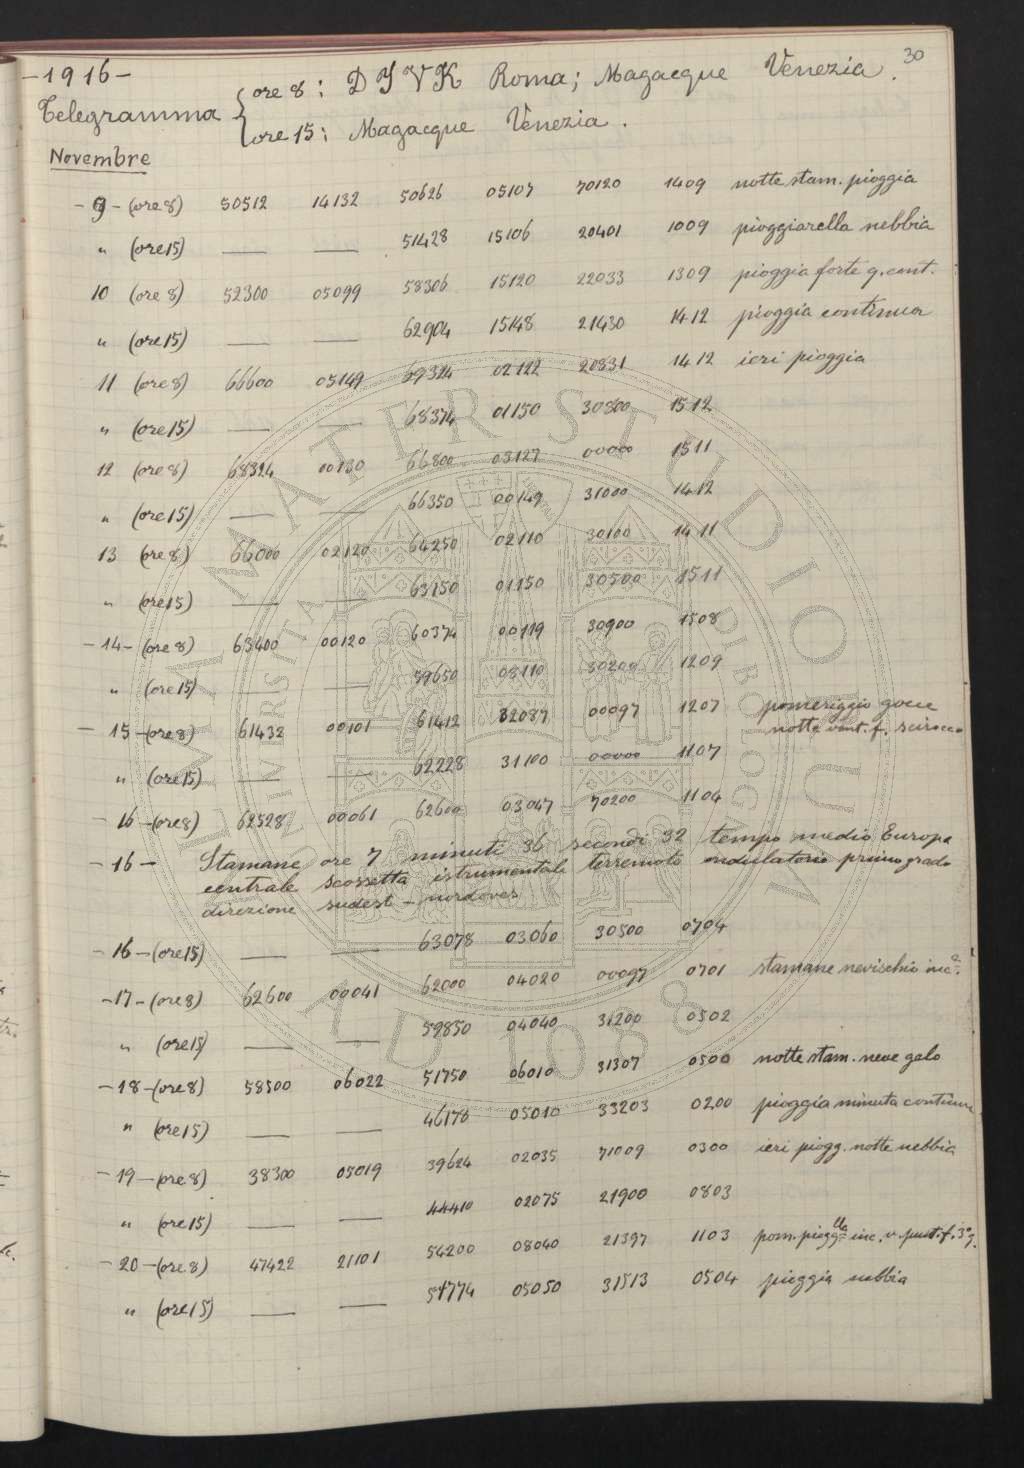 30
-1916-
Telegramma { ore 8: D I V K Roma; Magacque Venezia.
ore 15: Magacque Venezia.
Novembre
- 9 - (ore 8) 50512 14132 50626 05107 70120 1409 notte stam. pioggia
" (ore 15) — — 51428 15106 20401 1009 pioggiarella nebbia
10 (ore 8) 52300 05099 58306 15120 22033 1309 pioggia forte g. cont.
" (ore 15) — — 62904 15148 21430 1412 pioggia continua
11 (ore 8) 66600 05149 69324 02122 20831 1412 ieri pioggia
" (ore 15) — — 68374 01150 30800 1512
12 (ore 8) 68324 00130 66800 03127 00000 1511
" (ore 15) — — 66350 00149 31000 1412
13 (ore 8) 66000 02120 64250 02110 30100 1411
" (ore 15) — — 63150 01150 30500 1511
- 14 - (ore 8) 63400 00120 60374 00119 30900 1508
" (ore 15) — — 59650 03110 30200 1209
- 15 - (ore 8) 61432 00101 61412 32087 00097 1207 pomeriggio gocce
notte vent. f. scirocco
" (ore 15) — — 62228 31100 00000 1107
- 16 - (ore 8) 62528 00061 62600 03047 70200 1104
- 16 - Stamane ore 7 minuti 36 secondi 32 tempo medio Europa
centrale scossetta istrumentale terremoto ondulatorio primo grado
direzione sudest - nordovest
- 16 - (ore 15) — — 63078 03060 30500 0704
- 17 - (ore 8) 62600 00041 62000 04020 00097 0701 stamane nevischio inc.
" (ore 15) — — 59850 04040 31200 0502
- 18 - (ore 8) 58500 06022 51750 06010 31307 0500 notte stam. neve gelo
" (ore 15) — — 46178 05010 33203 0200 pioggia minuta continua
- 19 - (ore 8) 38300 05019 39624 02035 71009 0300 ieri piogg. notte nebbia
" (ore 15) — — 44410 02075 21900 0803
- 20 - (ore 8) 47422 21101 54200 08040 21397 1103 pom. piogg.lla inc. v. f. 3° g.
" (ore 15) — — 51774 05050 31513 0504 pioggia nebbia
ALMA MATER STUDIORUM
UNIVERSITÀ DI BOLOGNA
A.D. 1088